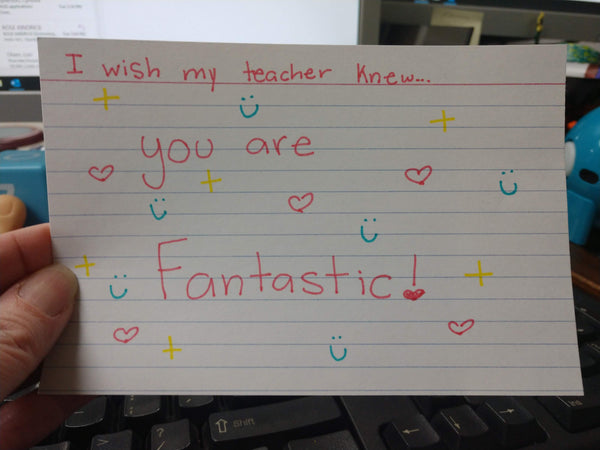 I wish my teacher knew...
you are
Fantastic!
Shift